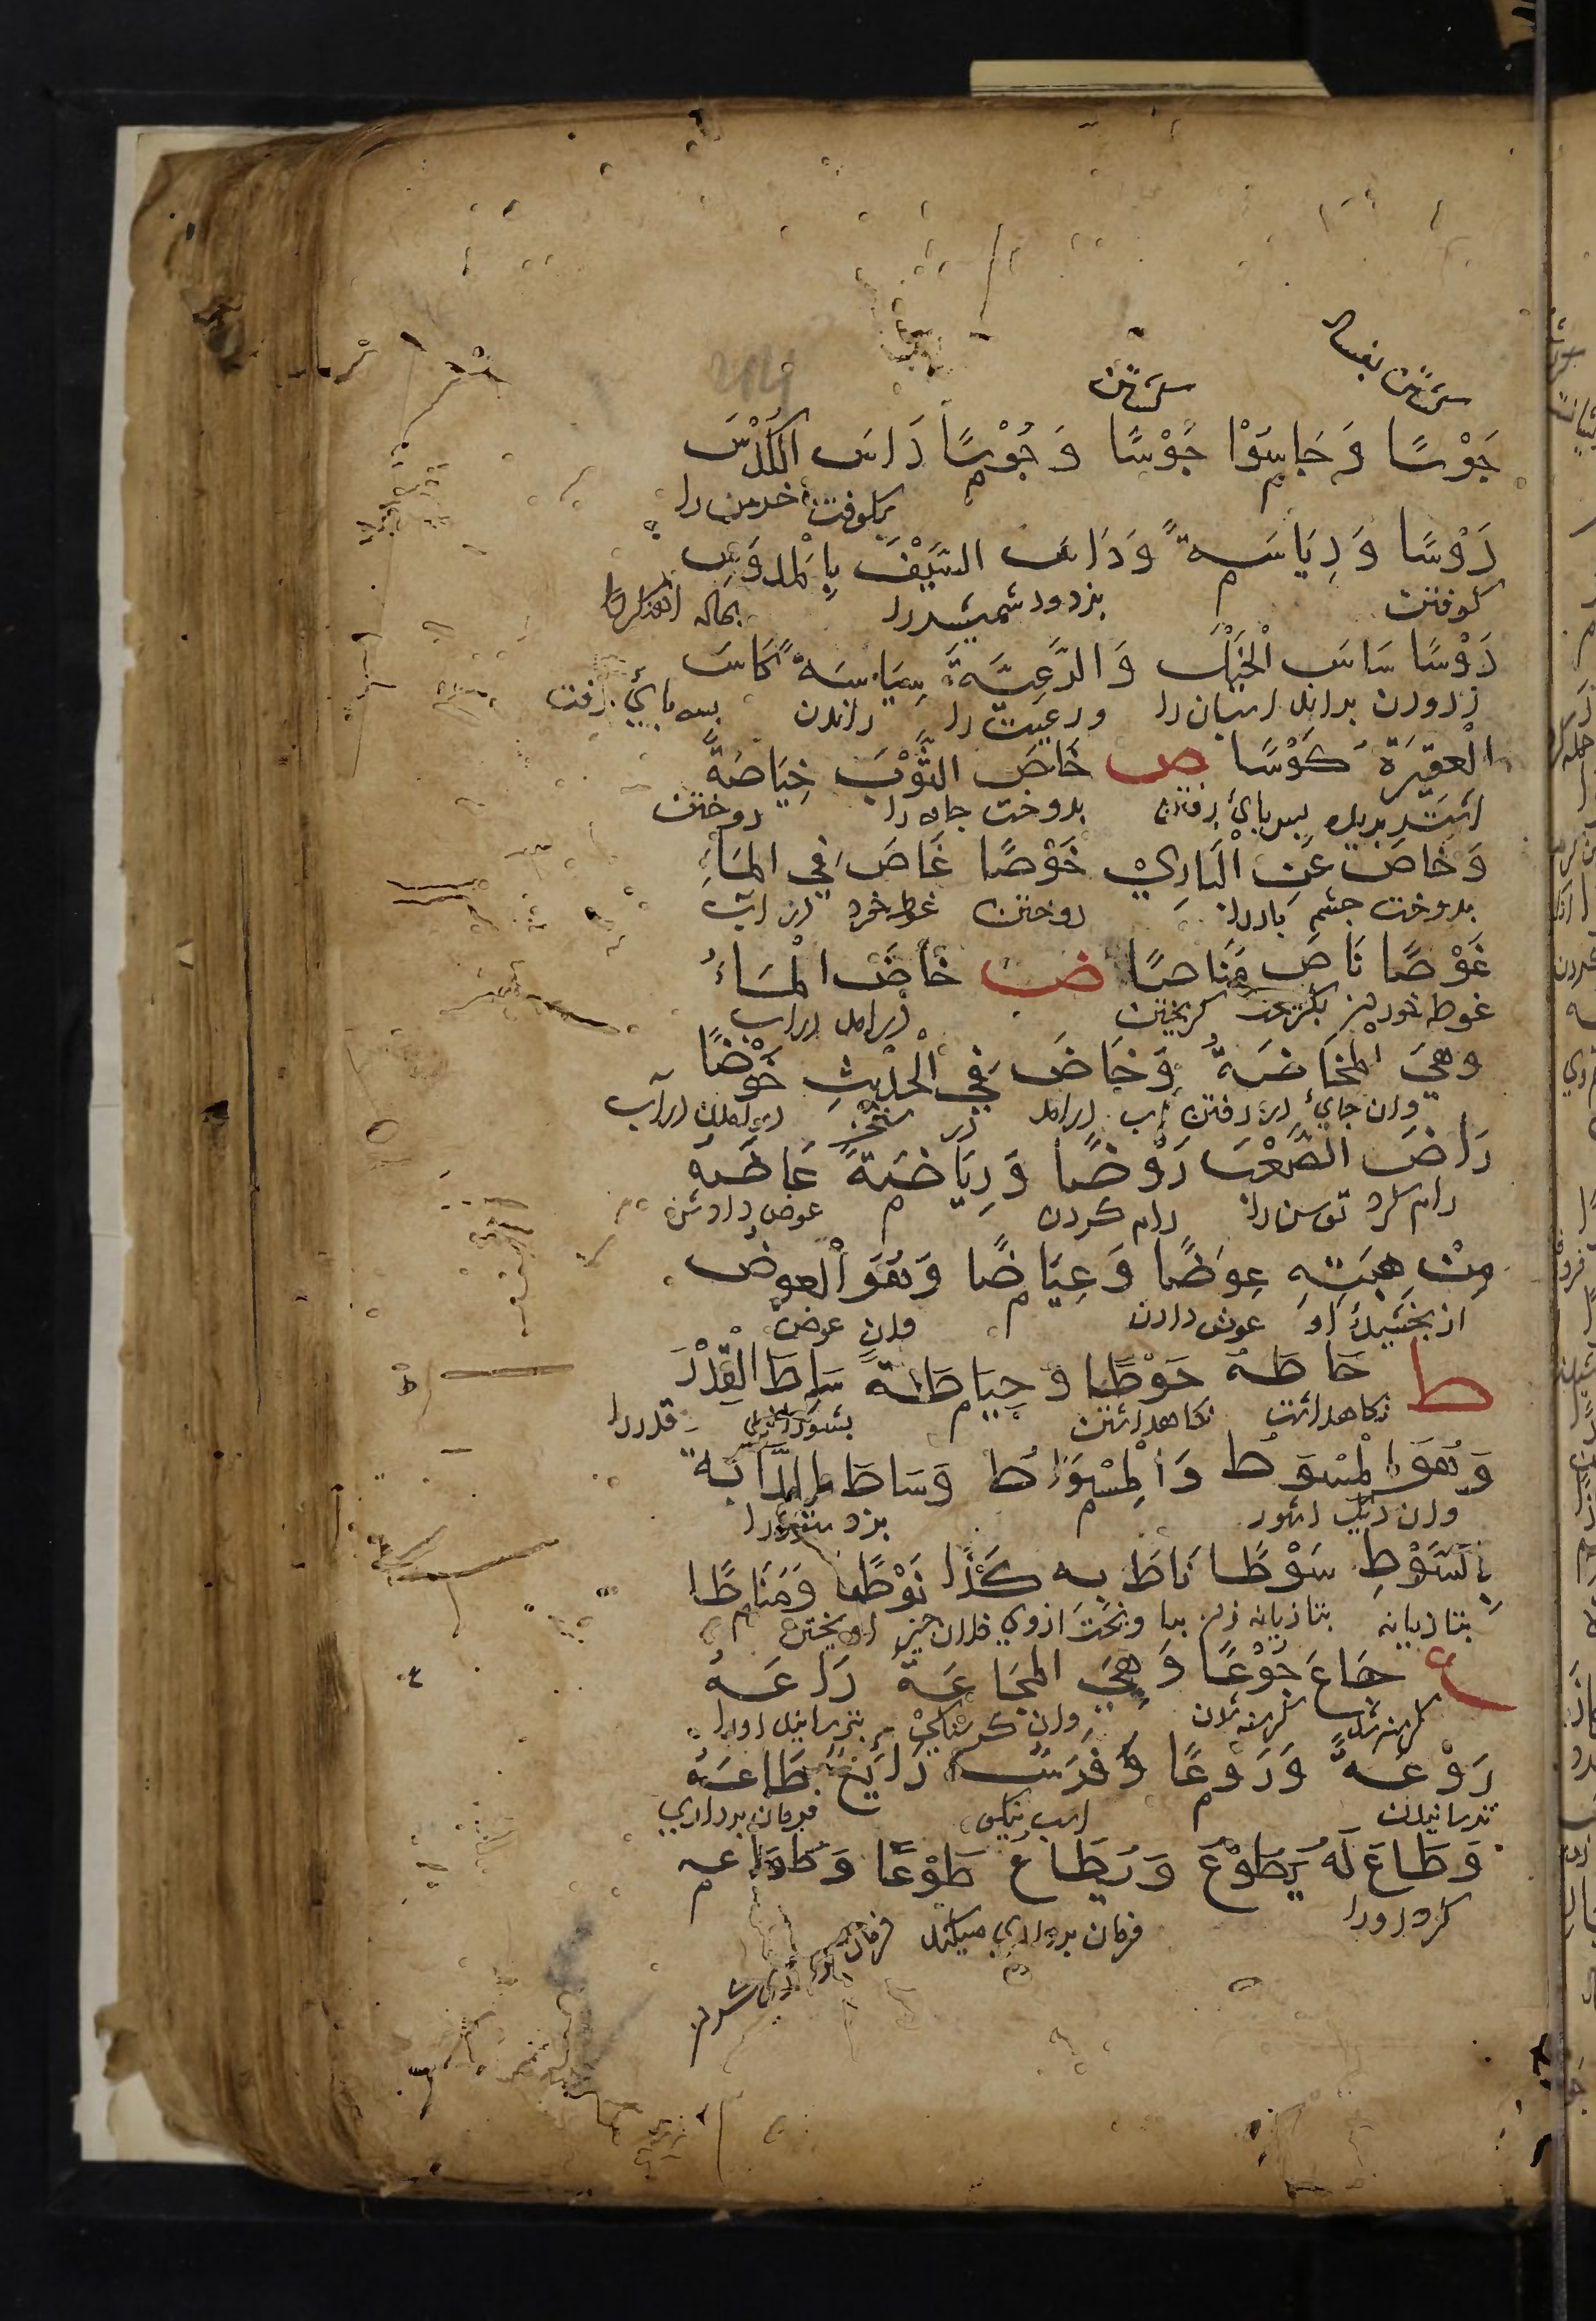 جَوْسًا وَ جَاسَوْا جَوْسًا وَ جُوْسًا دَاسَ الكُدْسَ
بكوفت خرمن را
دَوْسًا وَ دِيَاسَةً وَ دَاسَ السَّيْفَ بِالْمِدْوَسِ
كوفتن بزدود شمشير را
دَوْسًا سَاسَ الْخَيْلَ وَ الرَّعِيَّةَ سِيَاسَةً كَاسَ
زدودن براند اسبان را و رعيت را راندن بسه پاي رفت
الْعَقِيْرَةُ كَوْسًا ص خَاصَ الثَّوْبَ خِيَاصَةً
بسه پاي رفتن بدوخت جامه را دوختن
وَ خَاصَ عَيْنَ الْبَازِيْ خَوْصًا غَاصَ فِي الْمَاءِ
بدوخت چشم باز را دوختن غوطه خورد در آب
غَوْصًا نَاصَ مَنَاصًا ض خَاضَ الْمَاءَ
غوطه خوردن بگريخت گريختن درامد در آب
وَ هِيَ الْمَخَاضَةُ وَ خَاضَ فِي الْحَدِيْثِ خَوْضًا
وان جاي در رفتن آب درامد در سخن درامدن در آب
رَاضَ الصَّعْبَ رَوْضًا وَ رِيَاضَةً عَاضَهُ
رام كرد توسن را رام كردن عوض دادش
مِنْ هِبَتِهِ عِوَضًا وَ عِيَاضًا وَ هُوَ الْعِوَضُ
از بخشيدن او عوض دادن وان عوض
ط حَاطَهُ حَوْطًا وَ حِيَاطَةً سَاطَ الْقِدْرَ
نكاهداشت نكاهداشتن بشورانيد قدر را
وَ هُوَ الْمِسْوَطُ وَ الْمِسْوَاطُ وَ سَاطَ الدَّابَةَ
وان ديك آشور بزد ستور را
بِالسَّوْطِ سَوْطًا نَاطَ بِهِ كَذَا نَوْطًا وَ مَنَاطًا
بتازيانه بتازيانه زدن بياويخت ازوي فلان چيز آويختن
ع جَاعَ جُوْعًا وَ هِيَ الْمَجَاعَةُ رَاعَهُ
گرسنه شد گرسنه شدن وان گرسنگي بترسانيد اورا
رَوْعَةً وَ رَوْعًا وَ فَرَسٌ رَائِعٌ طَاعَهُ
ترسانيدن اسب نيكو فرمان برداري
وَ طَاعَ لَهُ يَطُوْعُ وَ يَطَاعُ طَوْعًا وَ طَوَاعِيَةً
كرد اورا فرمان برداري ميكند فرمان برداري كردن